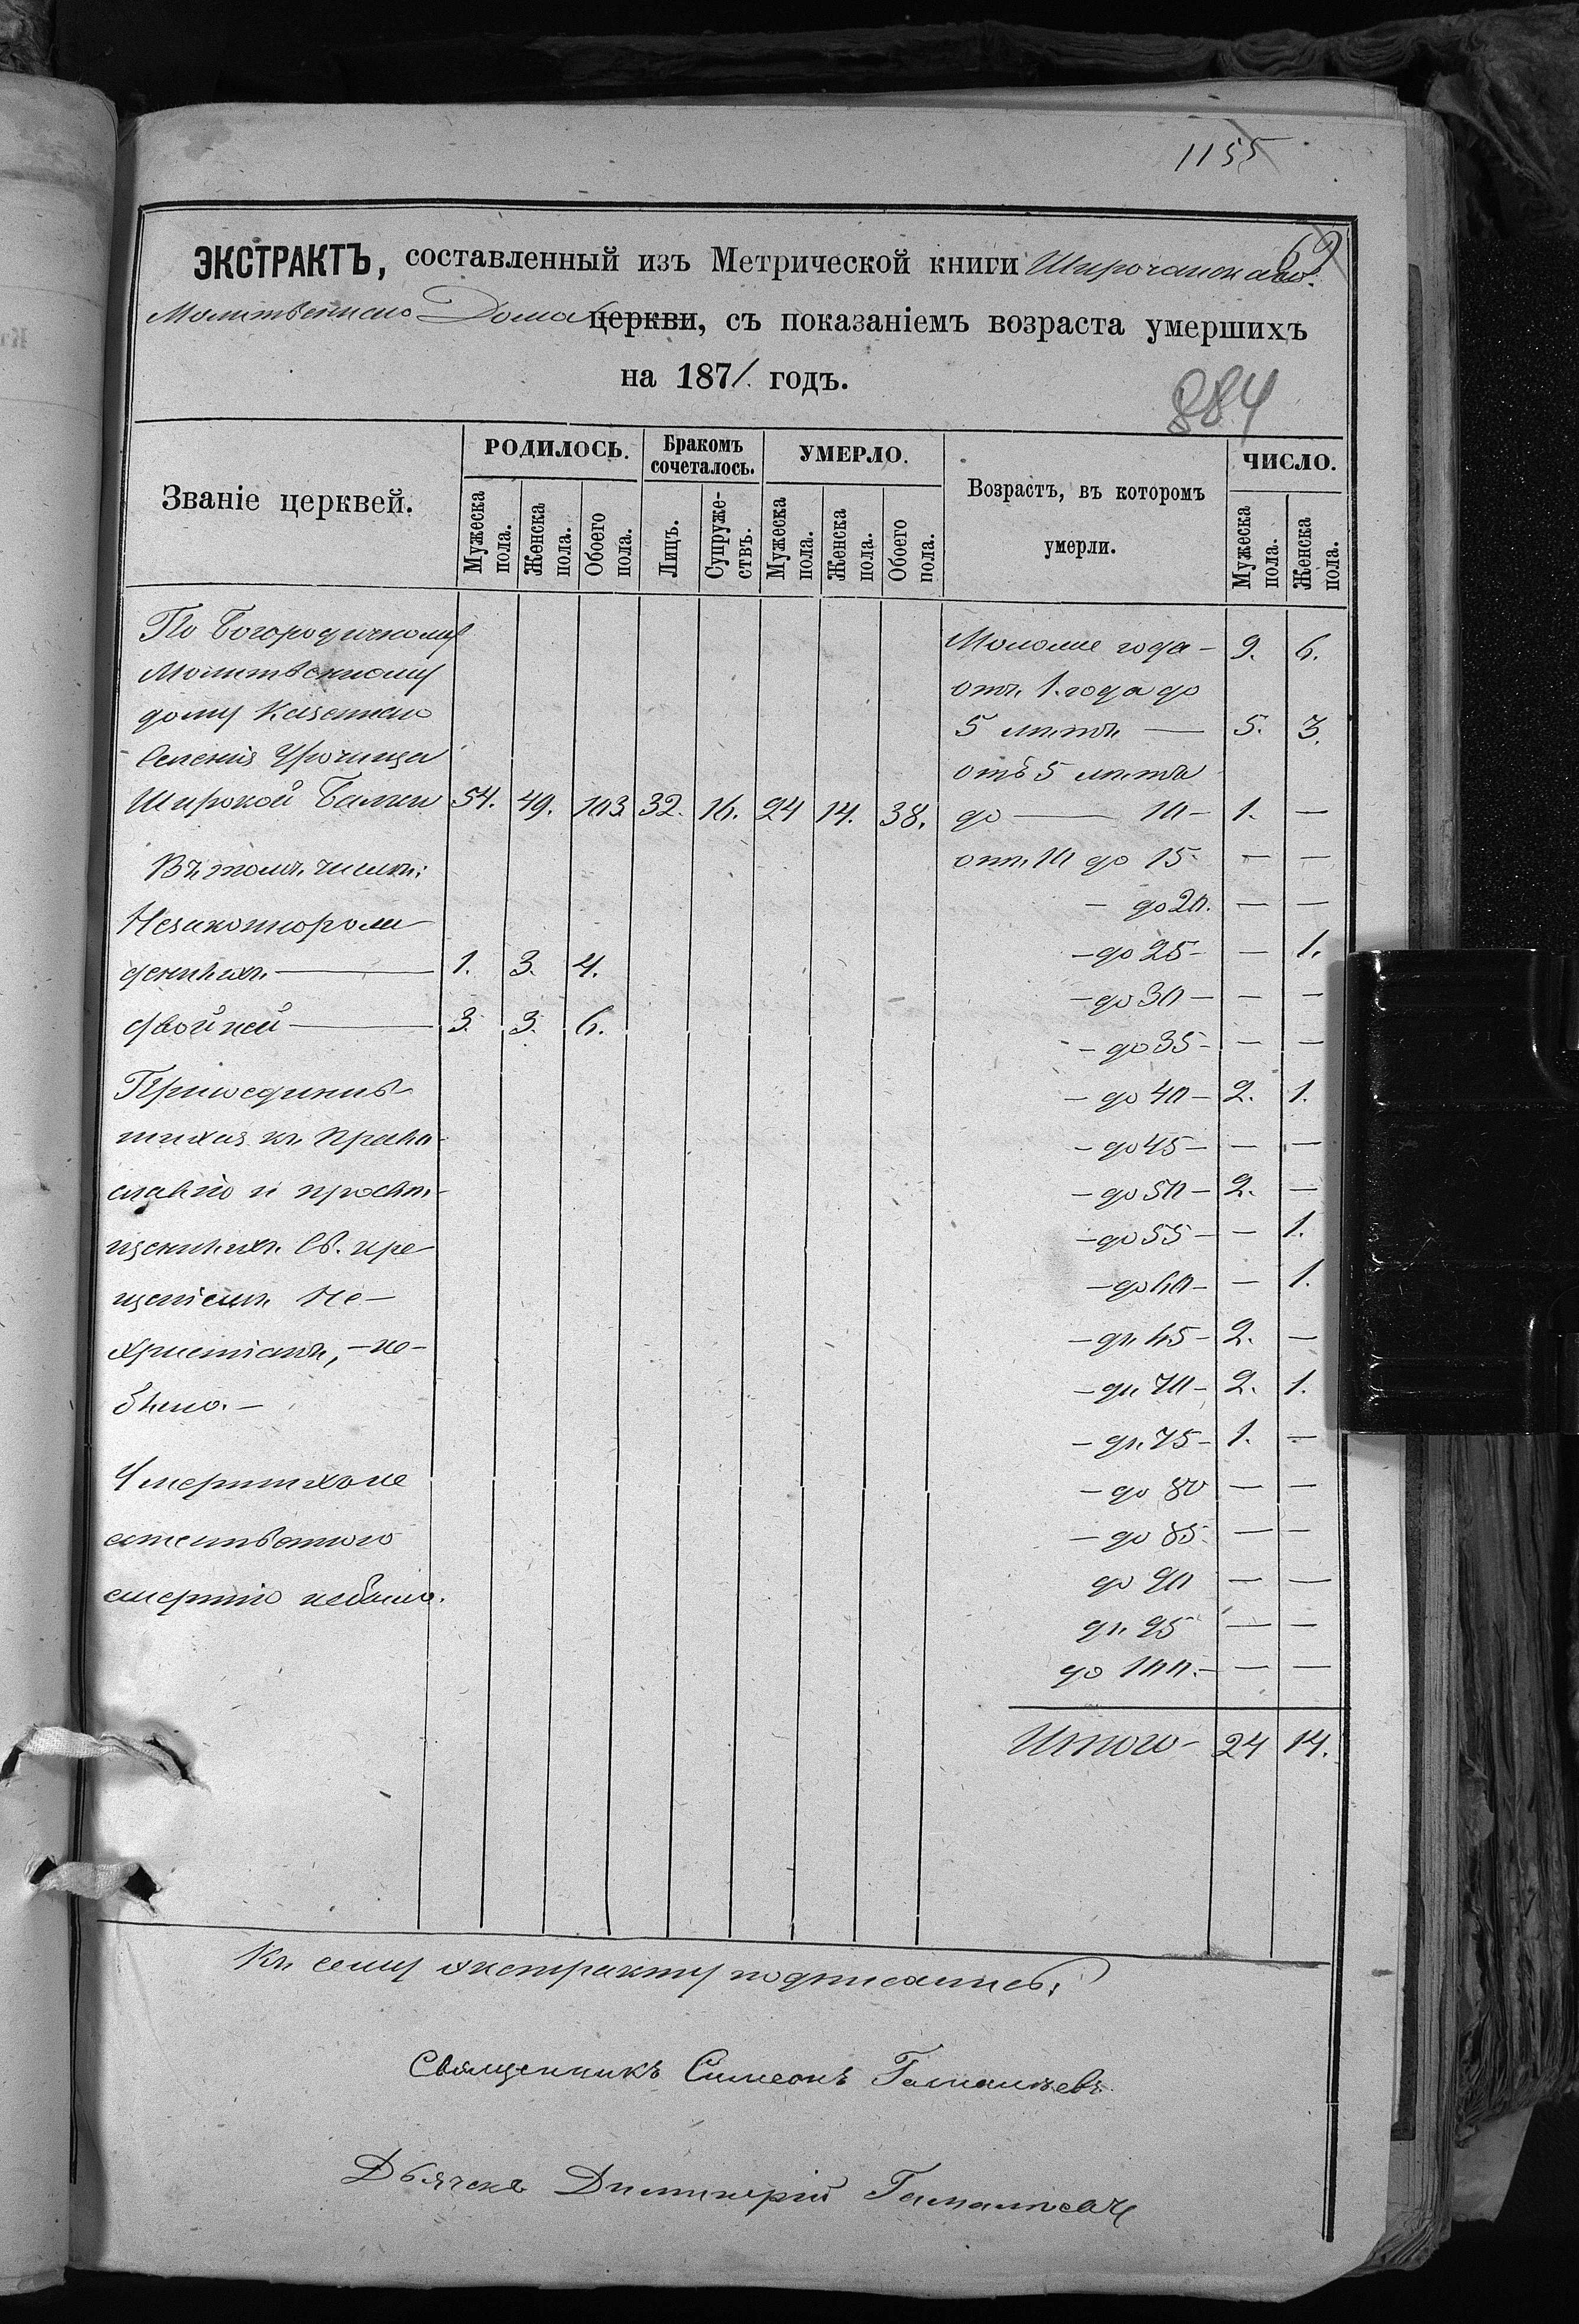 1155
69
ЭКСТРАКТЪ, составленный изъ Метрической книги Широчанскаго
Молитвеннаго Дома церкви, съ показаніемъ возраста умершихъ
на 1871. годъ.
884
Званіе церквей.
РОДИЛОСЬ.
Мужеска пола.
Женска пола.
Обоего пола.
Бракомъ сочеталось.
Лицъ.
Супружествъ.
УМЕРЛО.
Мужеска пола.
Женска пола.
Обоего пола.
Возрастъ, въ которомъ
умерли.
ЧИСЛО.
Мужеска пола.
Женска пола.
По Богородичному
Молитвенному
дому Казеннаго
Селенія Урочища
Широкой Балки 54. 49. 103. 32. 16. 24 14. 38.
Въ томъ числѣ:
Незаконнорож
денныхъ — 1. 3. 4.
двойней — 3. 3. 6.
Присоединив-
шихся къ право-
славію и просвѣ-
щенныхъ Св. кре-
щеніемъ Не-
христіанъ, - не-
было. -
Умершихъ не
естественною
смертію небыло.
Моложе года - 9. 6.
отъ 1. года до
5 лѣтъ — 5. 3.
отъ 5 лѣтъ
до — 10 - 1. —
отъ 10 до 15. — —
- до 20. — —
- до 25 - — 1.
- до 30 - — —
- до 35 - — —
- до 40 - 2. 1.
- до 45 - — —
- до 50 - 2. —
- до 55 - — 1.
- до 60 - — 1.
- до 65 - 2. —
- до 70 - 2. 1.
- до 75 - 1. —
- до 80 — —
- до 85. — —
до 90 — —
до 95 — —
до 100. - — —
Итого - 24 14.
Къ сему экстракту подписались:
Священникъ Симеонъ Гамалѣевъ.
Дьячекъ Димитрій Гамалѣевъ